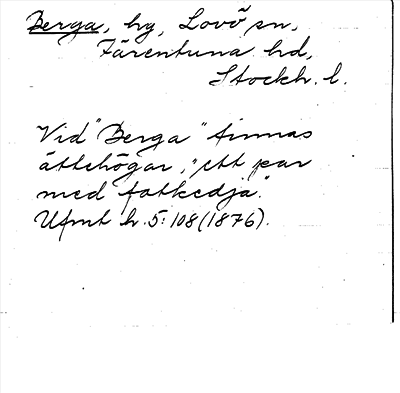 Berga, hg, Lovö sn,
Färentuna hd,
Stockh. l.
Vid "Berga" finnas
ättehögar, "ett par
med fotkedja".
Ufmt h.5:108(1876).